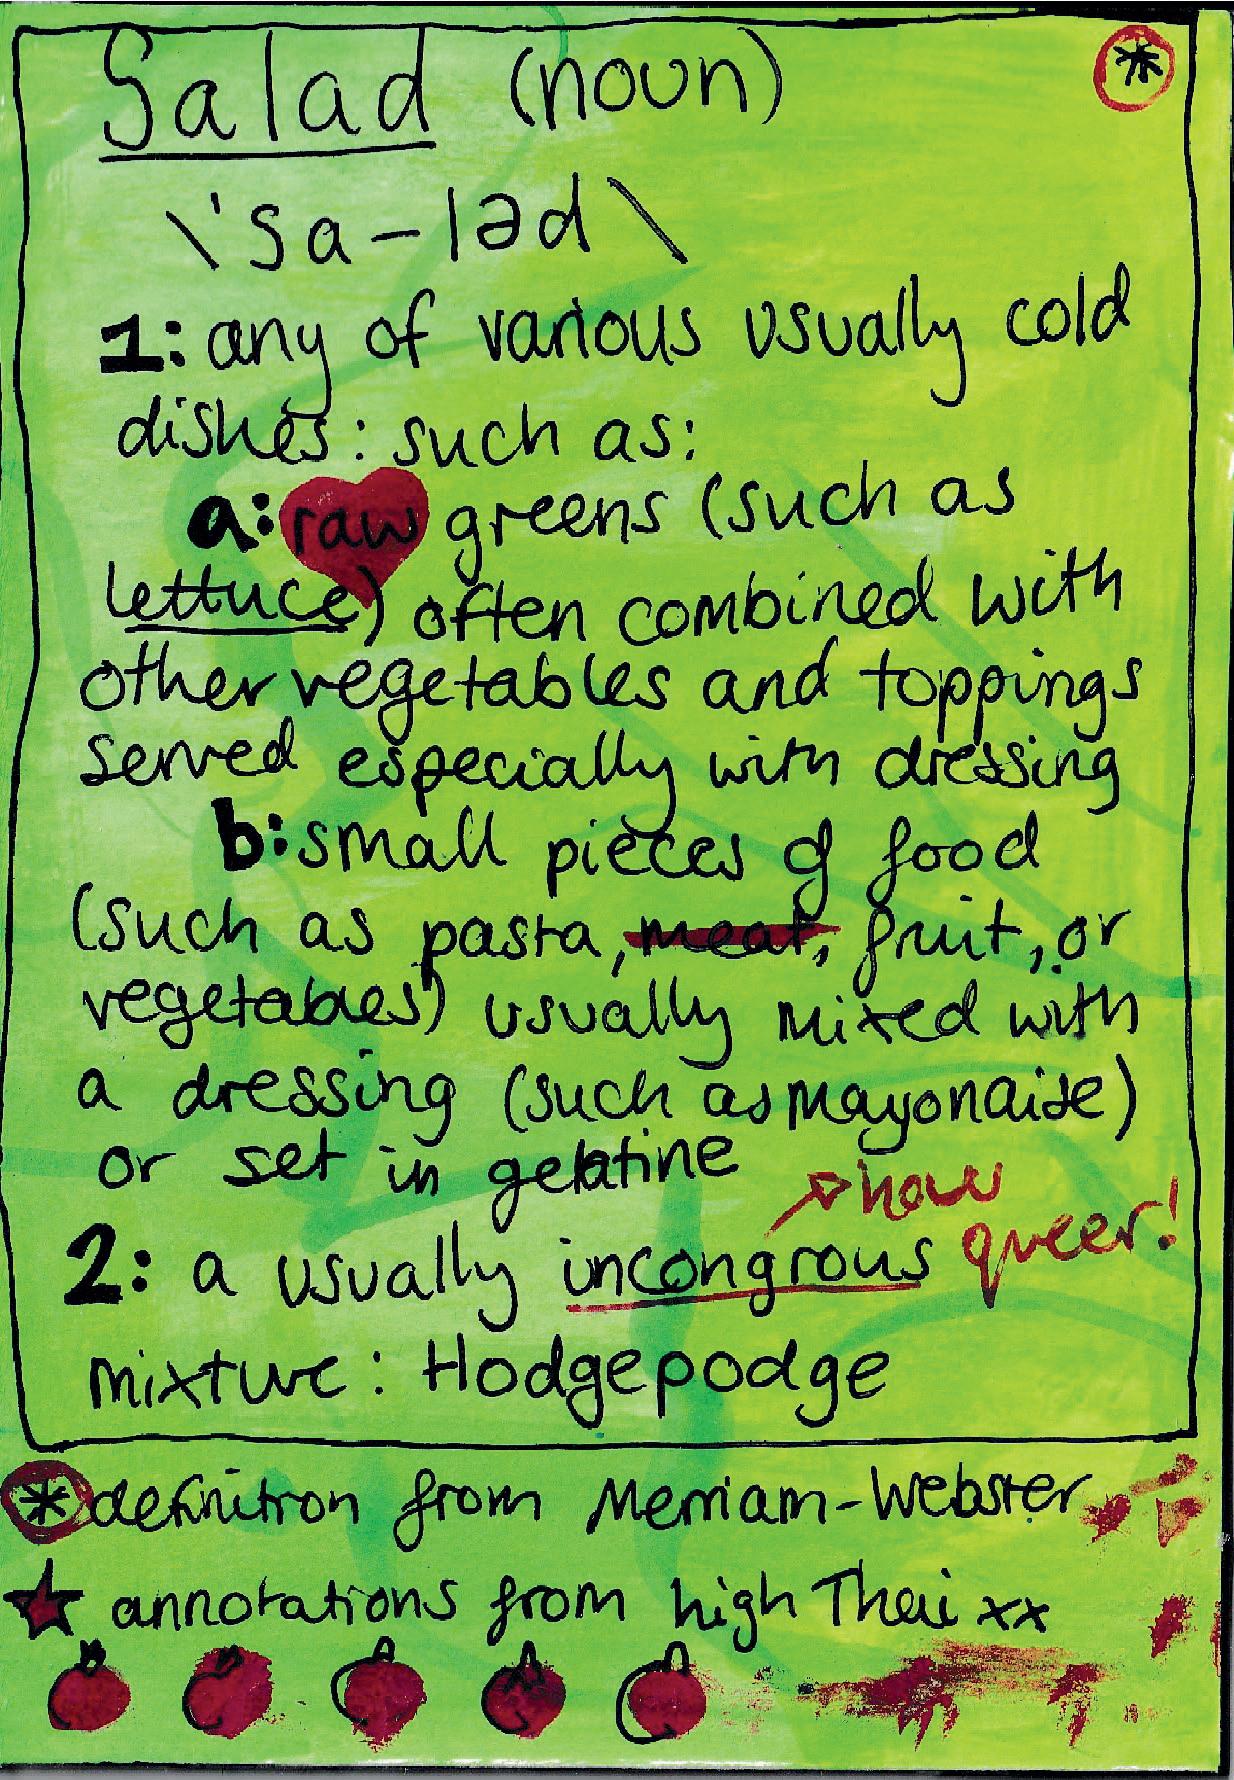 Salad (noun) *
\'sa-ləd\
1: any of various usually cold
dishes: such as:
a: raw greens (such as
lettuce) often combined with
other vegetables and toppings
served especially with dressing
b: small pieces of food
(such as pasta, meat, fruit, or
vegetables) usually mixed with
a dressing (such as mayonaise)
or set in gelatine
how
queer!
2: a usually incongrous
mixture: Hodgepodge
* definition from Merriam-Webster
★ annotations from high Thai xx